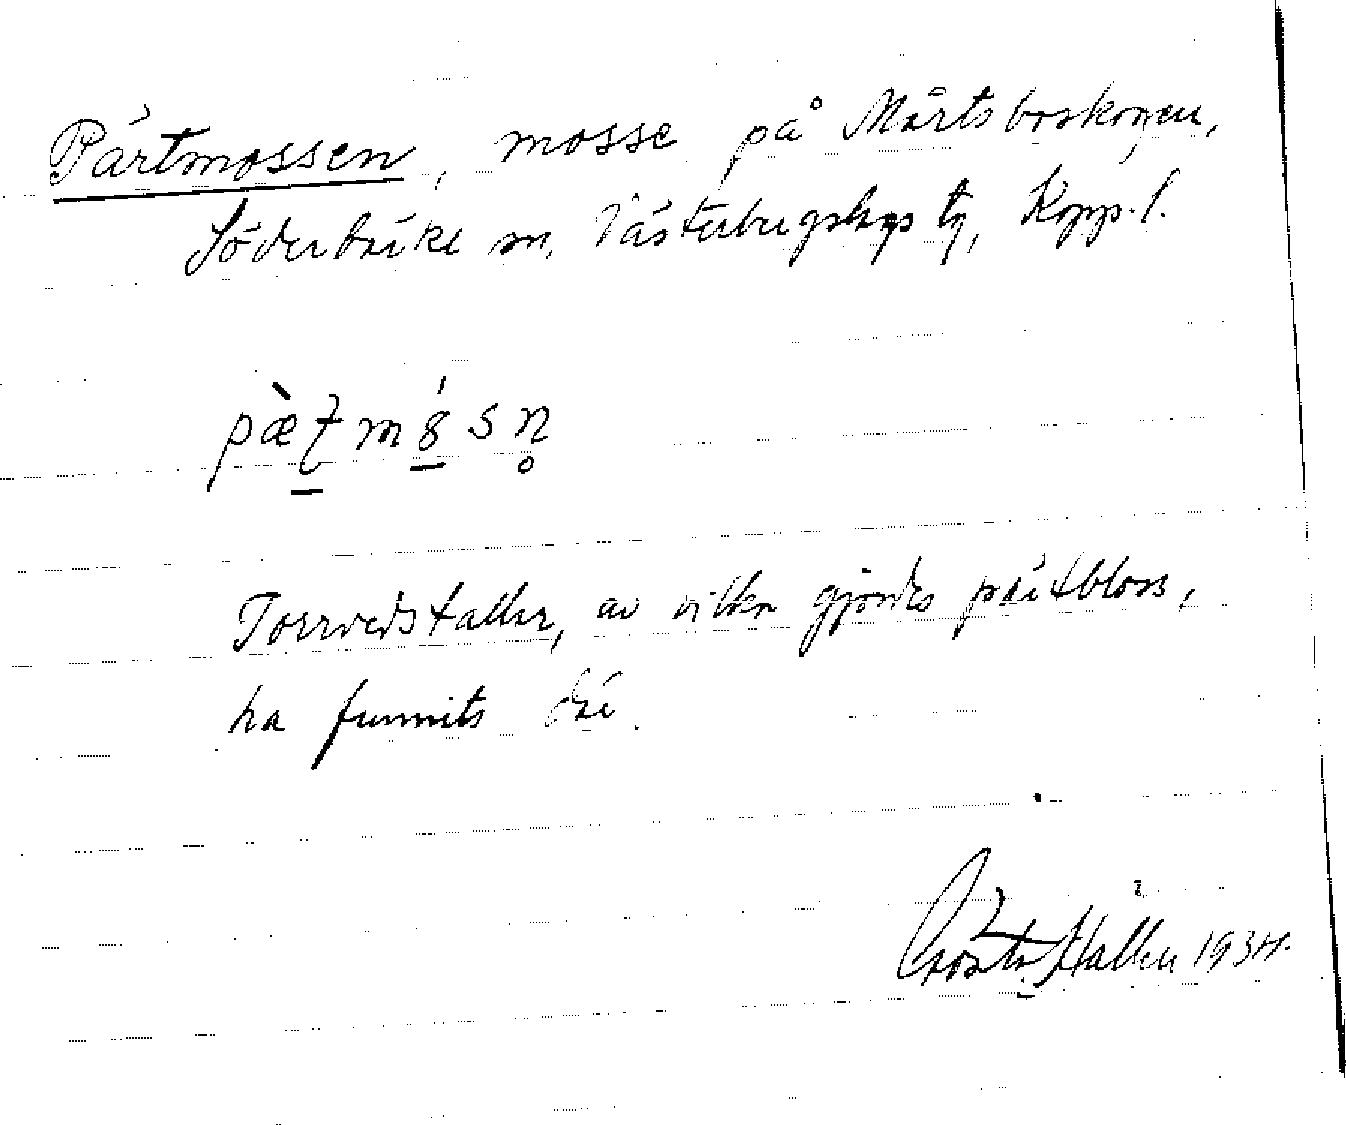 Pärtmossen, mosse på Mårtsboskogen,
Söderbärke sn, Västerbergslags tg, Kopp. l.
Torrvedstallar, av vilka gjordes pärtbloss,
ha funnits där.
Hallen 1934.